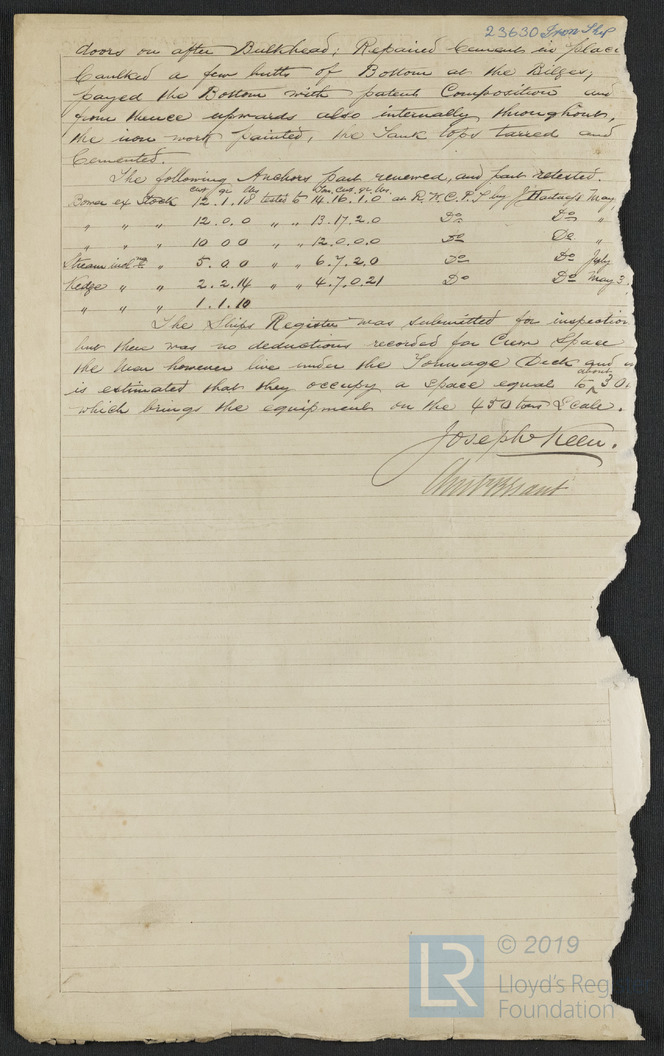 23630 Iron Ship
doors on after Bulkhead; Repaired Cement in place
Caulked a few butts of Bottom at the Bilges;
payed the Bottom with patent Composition and
from thence upwards also internally throughout,
the iron work painted, the Tank tops tarred and
Cemented.
The following Anchors part renewed and part retested.
cwt qr lbs Ton. cwt. qr. lbs.
Bower ex Stock 12.1.18 tested to 14.16.1.0 at R.W.C.P.S by J Hartness May
" " " 12.0.0 " " 13.17.2.0 Do Do "
" " " 10 0 0 " " 12.0.0.0 Do Do "
Stream incl " 5.0.0 " " 6.7.2.0 Do Do July
Kedge " " 2.2.14 " " 4.7.0.21 Do Do May 3.
" " " 1.1.10
The Ships Register was submitted for inspection
but there was no deductions recorded for Crew Space
the Men however live under the Tonnage Deck and
is estimated that they occupy a space equal to about 30
which brings the equipment on the 450 tons Scale.
Joseph Keen.
LR
© 2019
Lloyd's Reg
Foundation